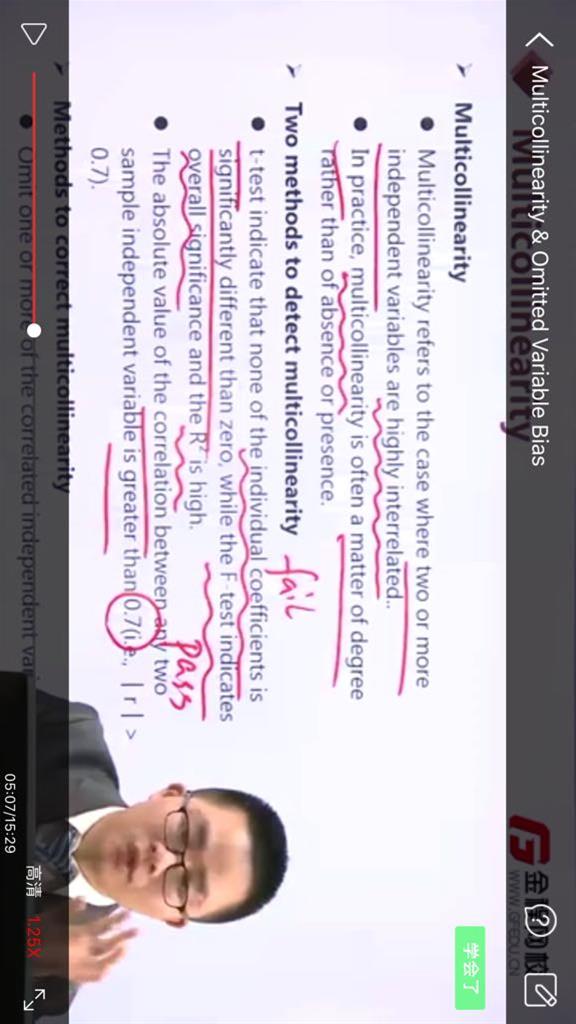 Multicollinearity & Omitted Variable Bias
Multicollinearity
WWW.GFEDU.CN
学会了
➢ Multicollinearity
● Multicollinearity refers to the case where two or more
independent variables are highly interrelated..
● In practice, multicollinearity is often a matter of degree
rather than of absence or presence.
➢ Two methods to detect multicollinearity
fail
● t-test indicate that none of the individual coefficients is
significantly different than zero, while the F-test indicates
overall significance and the R² is high.
pass
● The absolute value of the correlation between any two
sample independent variable is greater than 0.7(i.e., | r | >
0.7).
➢ Methods to correct multicollinearity
● Omit one or more of the correlated independent var
05:07/15:29
高清
1.25X